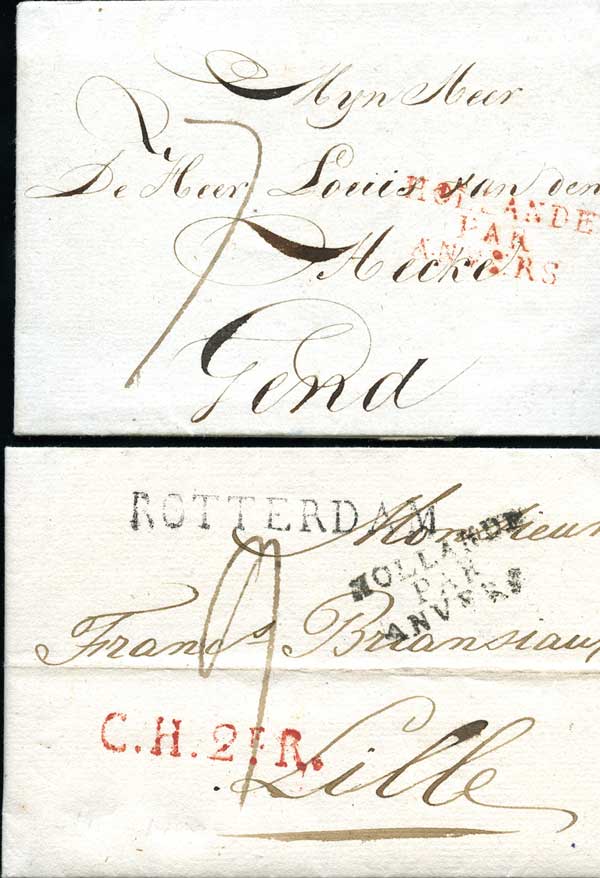 Myn Heer
7
De Heer Louis van den
HOLLANDE
PAR
ANVERS
Hecke
Gend
ROTTERDAM
Monsieur
HOLLANDE
PAR
ANVERS
9
Franc.s Briansiaux
C.H.2.R.
Lille